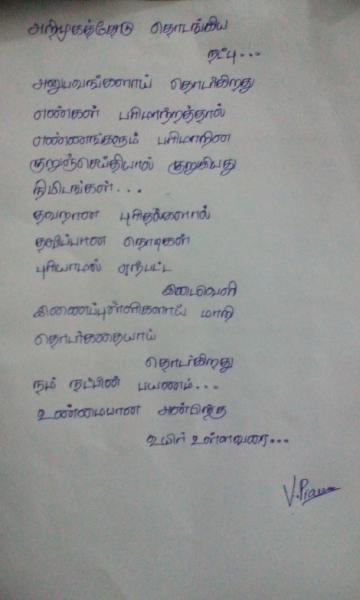 அறிமுகத்தோடு தொடங்கிய
நட்பு...
அனுபவங்களாய் தொடர்கிறது
எண்கள் பரிமாற்றத்தால்
எண்ணங்களும் பரிமாறின
குறுஞ்செய்தியால் குறுகியது
நிமிடங்கள்...
தவறான புரிதல்களால்
தவிப்பான நொடிகள்
புரியாமல் ஏற்பட்ட
இடைவெளி
இணைப்புள்ளிகளாய் மாறி
தொடர்கதையாய்
தொடர்கிறது
நம் நட்பின் பயணம்...
உண்மையான அன்பிற்கு
உயிர் உள்ளவரை...